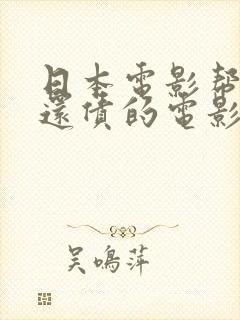 日本電影幫
還債的電影
吳鳴萍